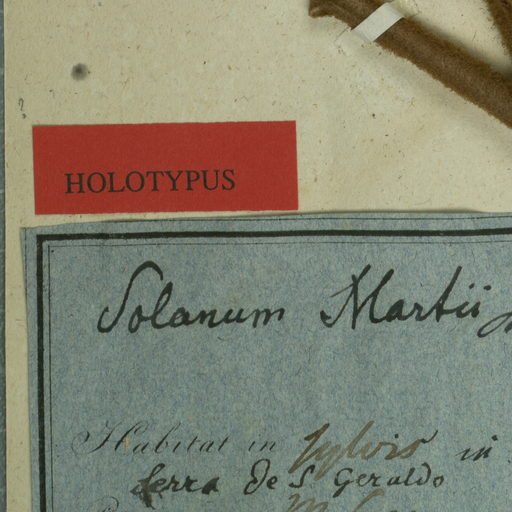 HOLOTYPUS
Solanum Martii
Habitat in sylvis in
Serra de S. Geraldo